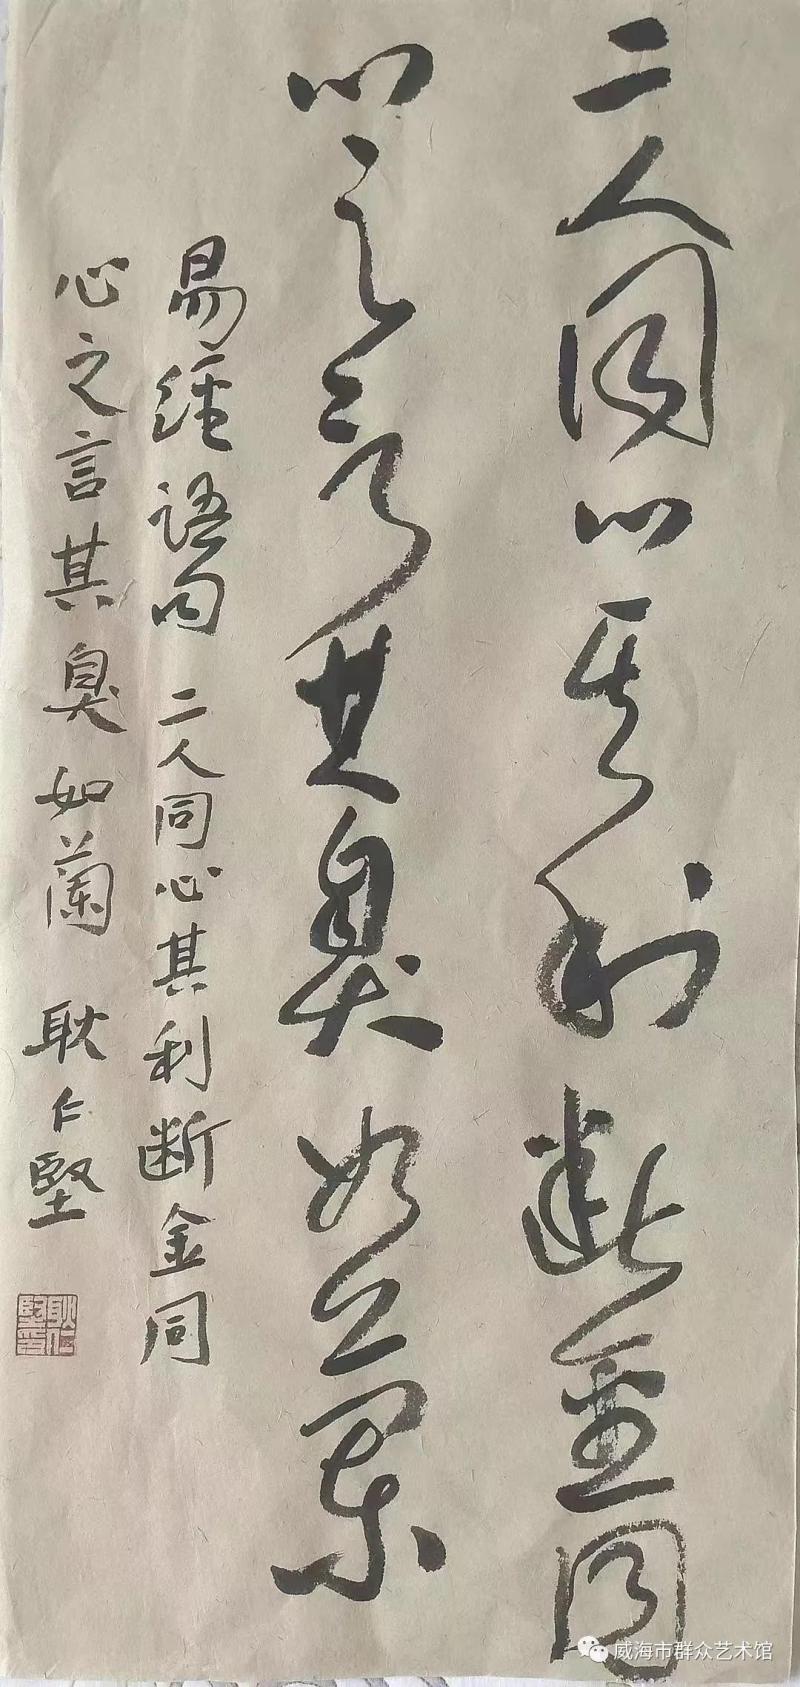 二人同心其利断金同
心之言其臭如兰
易經語句 二人同心其利断金同
心之言其臭如蘭 耿仁堅
耿仁堅印
威海市群众艺术馆